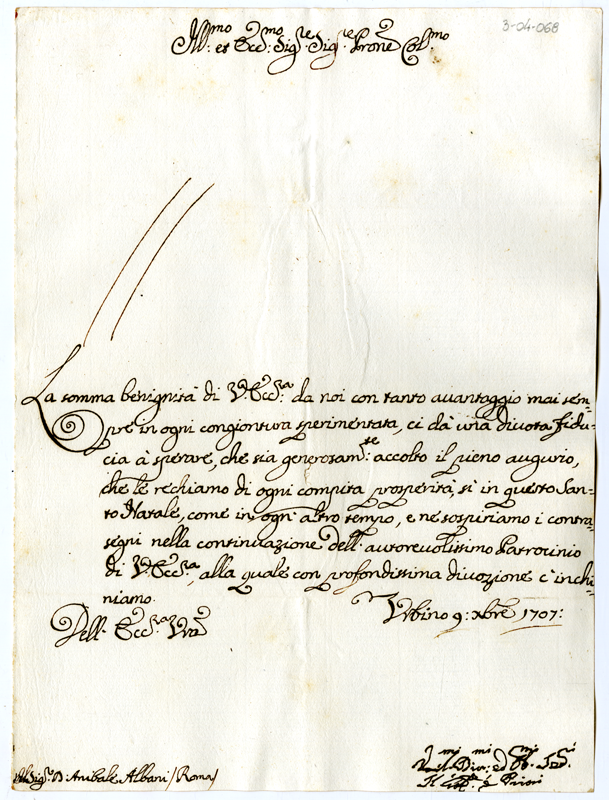 3-04-068
Ill.mo et Ecc.mo Sig.re Sig.re Prone Col.mo
La somma benignità di V. Ecc.za da noi con tanto avantaggio mai sem-
pre in ogni congiontura sperimentata, ci dà una divota fidu-
cia à sperare, che sia generosam.te accolto il pieno augurio,
che le rechiamo di ogni compita prosperità, sì in questo San-
to Natale, come in ogn' altro tempo, e ne sospiriamo i contra-
segni nella continuazione dell' autorevolissimo Patrocinio
di V. Ecc.za, alla quale con profondissima divozione c'inchi-
niamo.
Urbino 9: Xbre 1707:
Dell' Ecc.za Vra
Sig.r D. Anibale Albani / Roma /
Dev.mi ed Obb.mi
Il e Priori